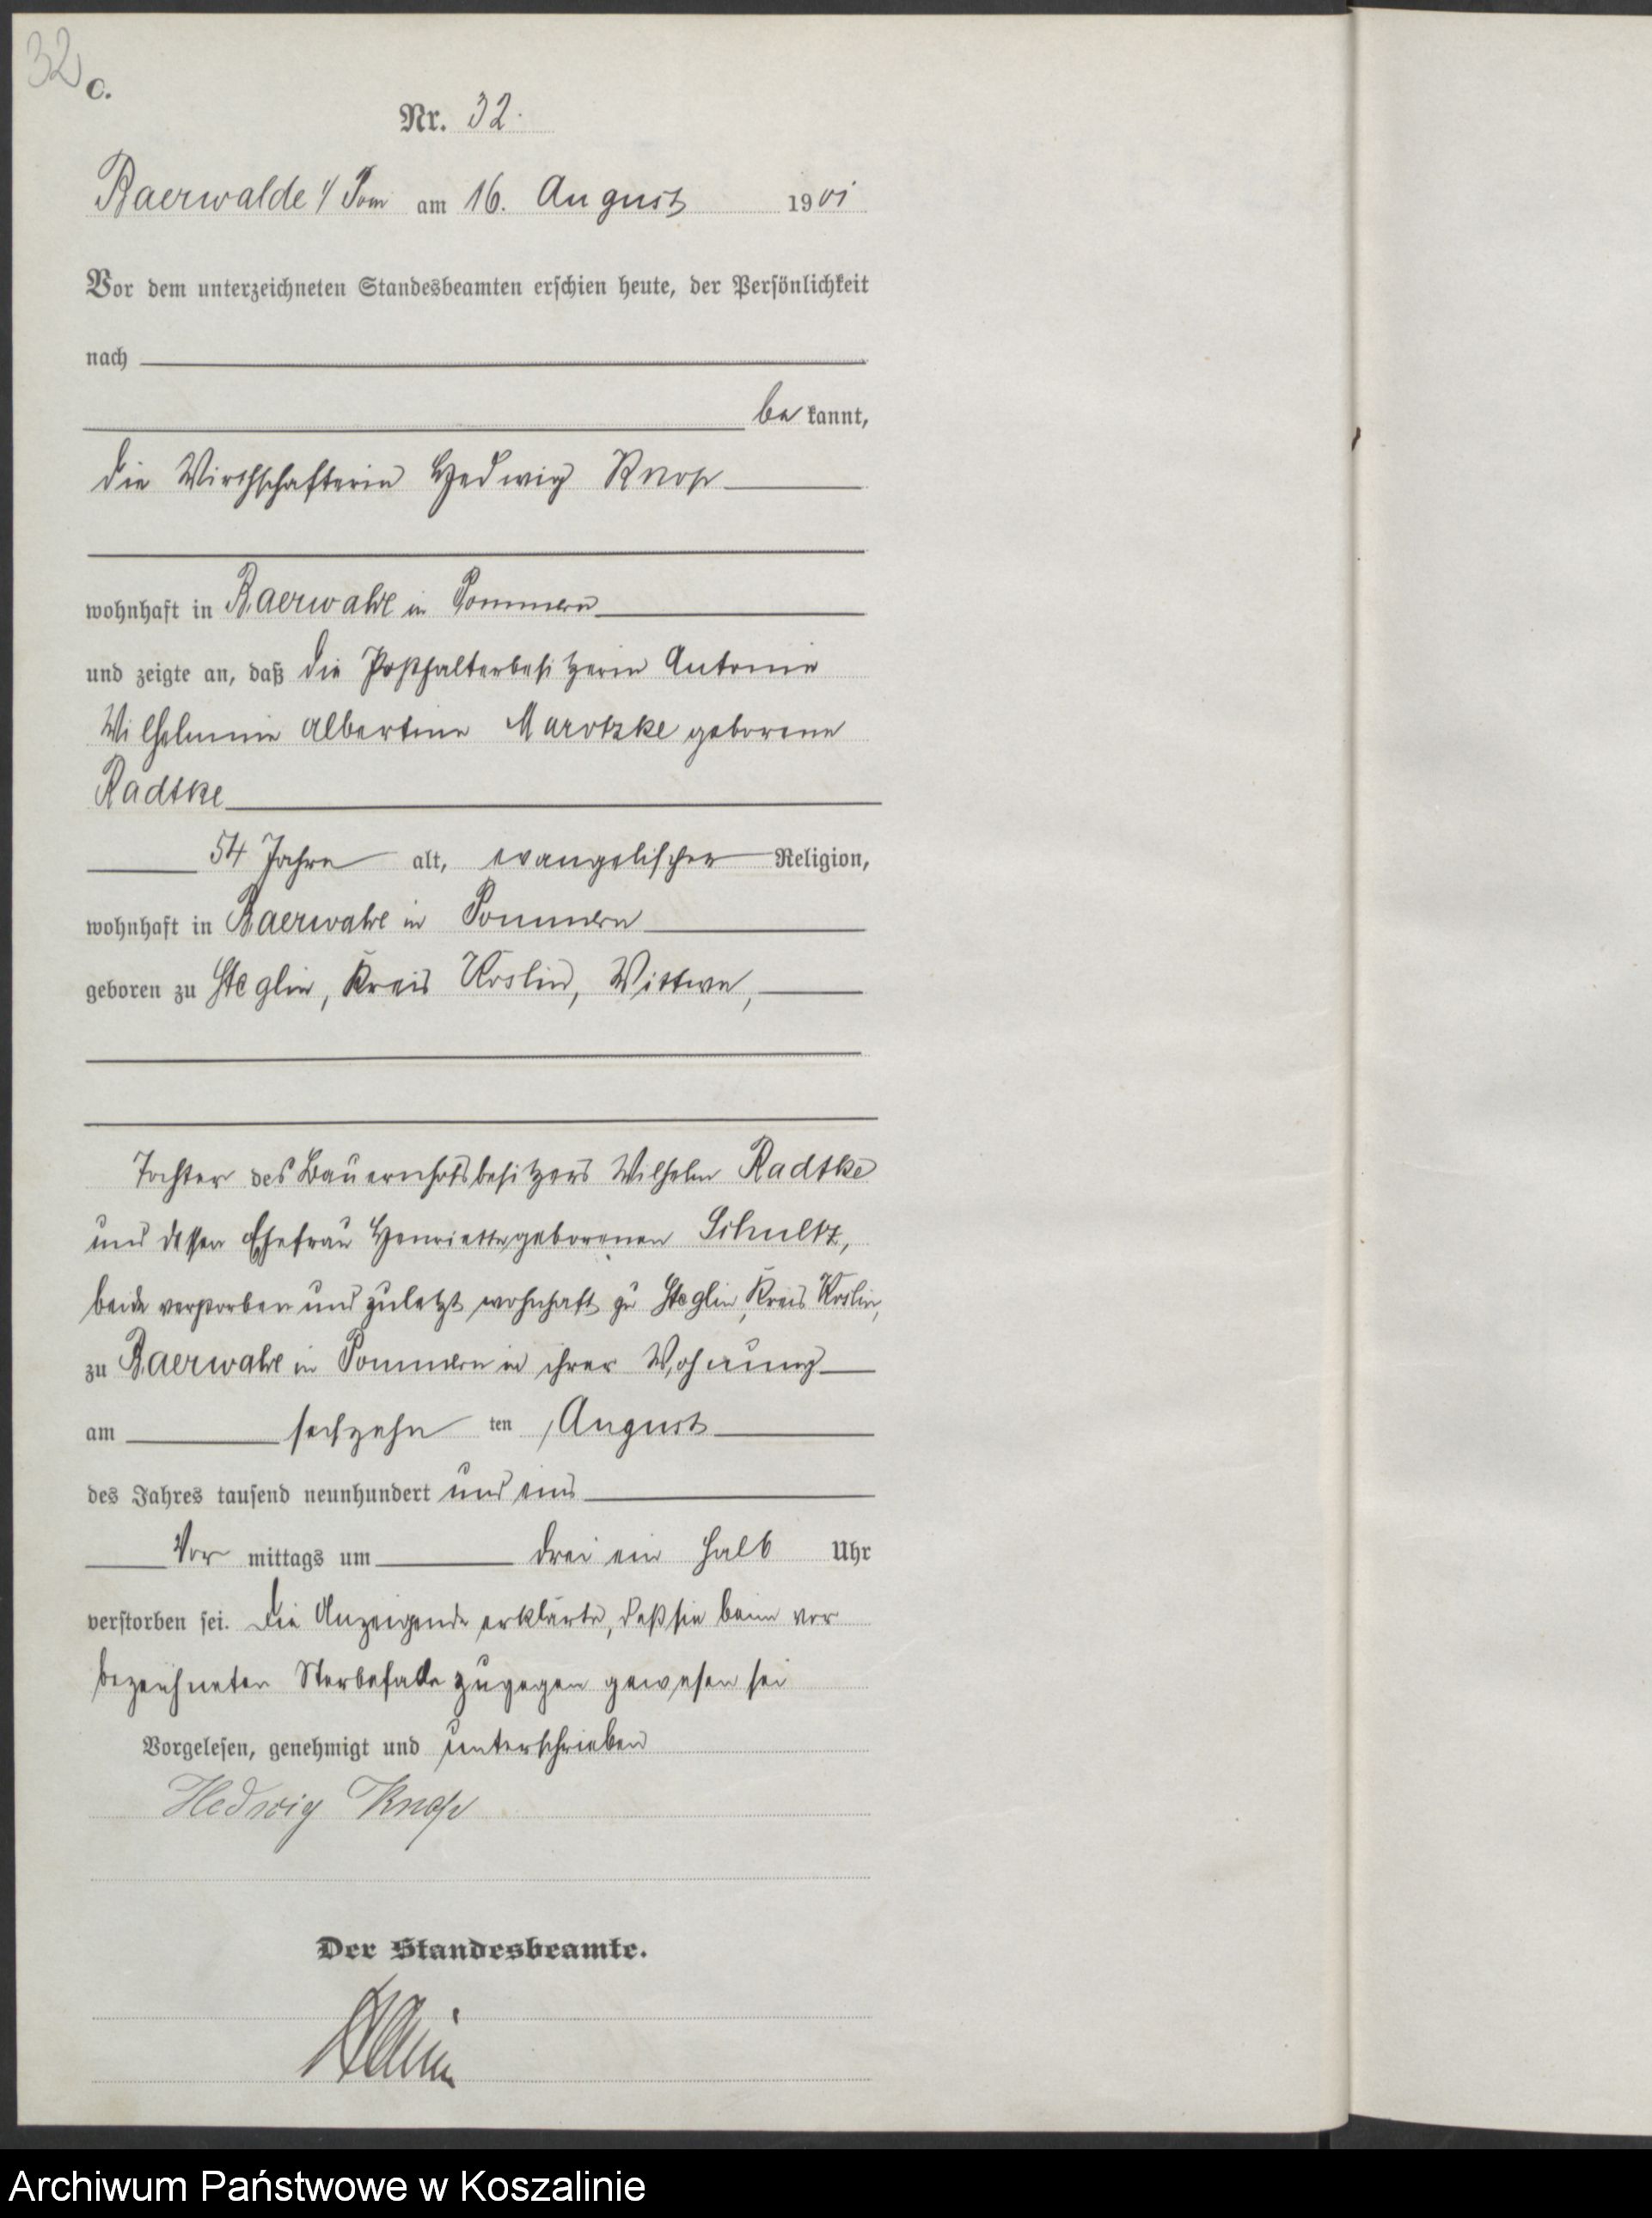 32
C.
Nr. 32.
Baerwalde i/ Pom am 16. August 1901
Vor dem unterzeichneten Standesbeamten erschien heute, der Persönlichkeit
nach
be kannt,
die Wirthschafterin Hedwig Knop
wohnhaft in Baerwalde in Pommern
und zeigte an, daß die Posthalterbesitzerin Antonie
Wilhelmine Albertine Marotzke geborene
Radtke
54 Jahre alt, evangelischer Religion,
wohnhaft in Baerwalde in Pommern
geboren zu Steglin, Kreis Köslin, Wittwe,
Tochter des Bauernhofsbesitzers Wilhelm Radtke
und dessen Ehefrau Henriette geborenen Schultz,
beide verstorben und zuletzt wohnhaft zu Steglin, Kreis Köslin,
zu Baerwalde in Pommern in ihrer Wohnung
am sechzehn ten August
des Jahres tausend neunhundert und eins
Vor mittags um drei ein halb Uhr
verstorben sei. Die Anzeigende erklärte, daß sie beim vor
bezeichneten Sterbefalle zugegen gewesen sei
Vorgelesen, genehmigt und unterschrieben
Hedwig Knop
Der Standesbeamte.
Archiwum Państwowe w Koszalinie